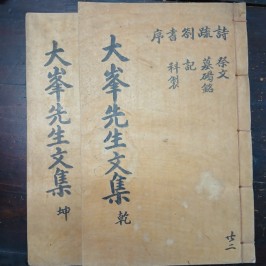 詩 祭文
疏 墓碣銘
劄 記
書 科製
序
大峯先生文集 乾
大峯先生文集 坤
廿二